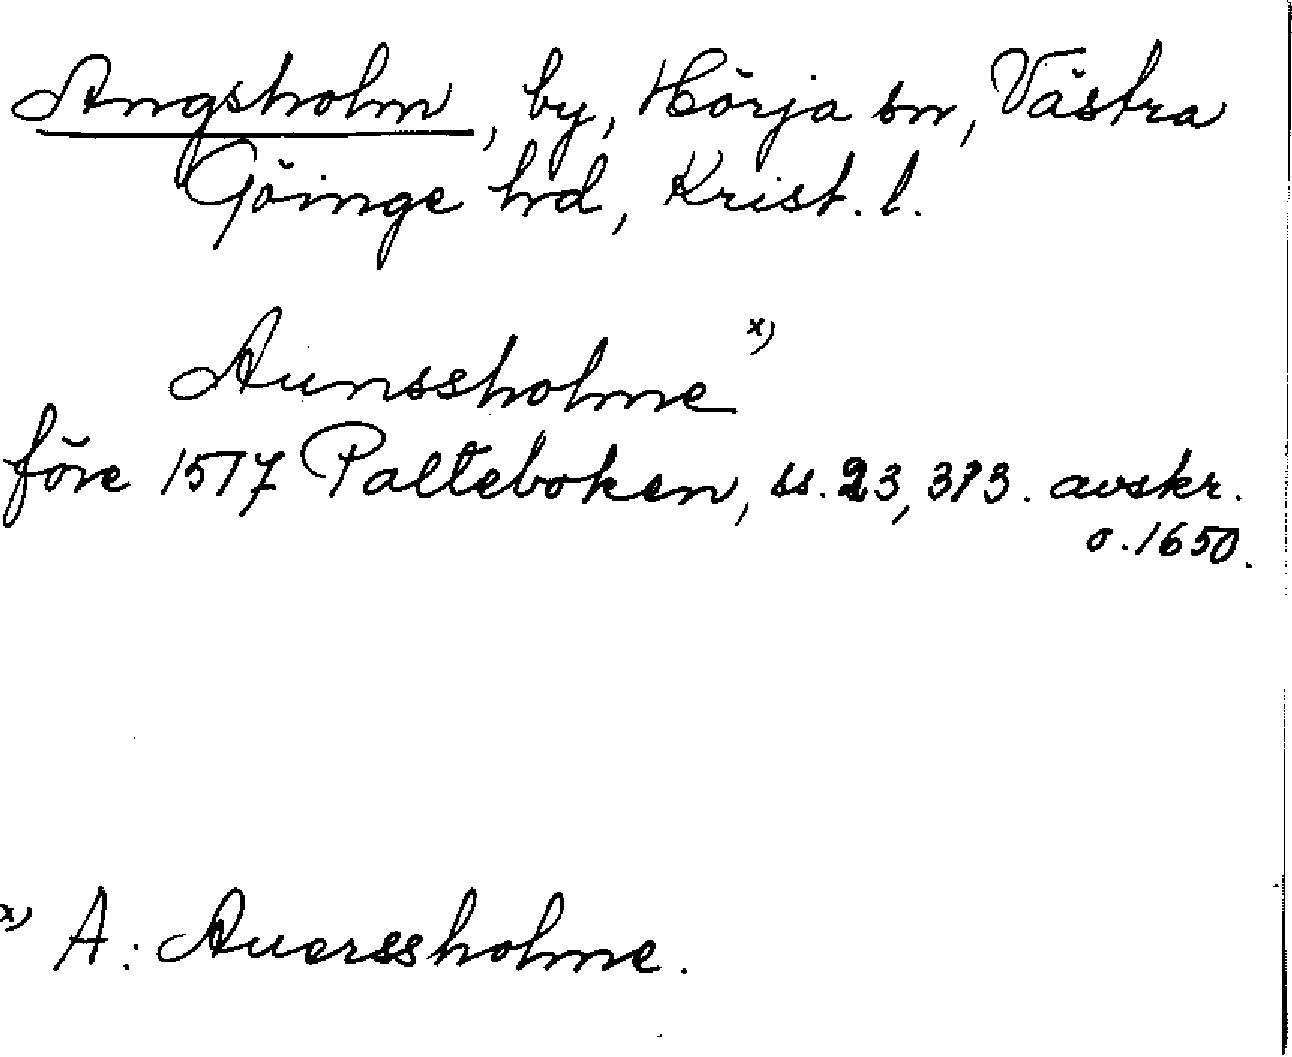 Angsholm, by, Hörja sn, Västra
Göinge hrd, Krist. l.
Aunssholme x)
före 1517 Palteboken, ss. 23, 373. avskr.
o. 1650.
x) A: Auerssholme.